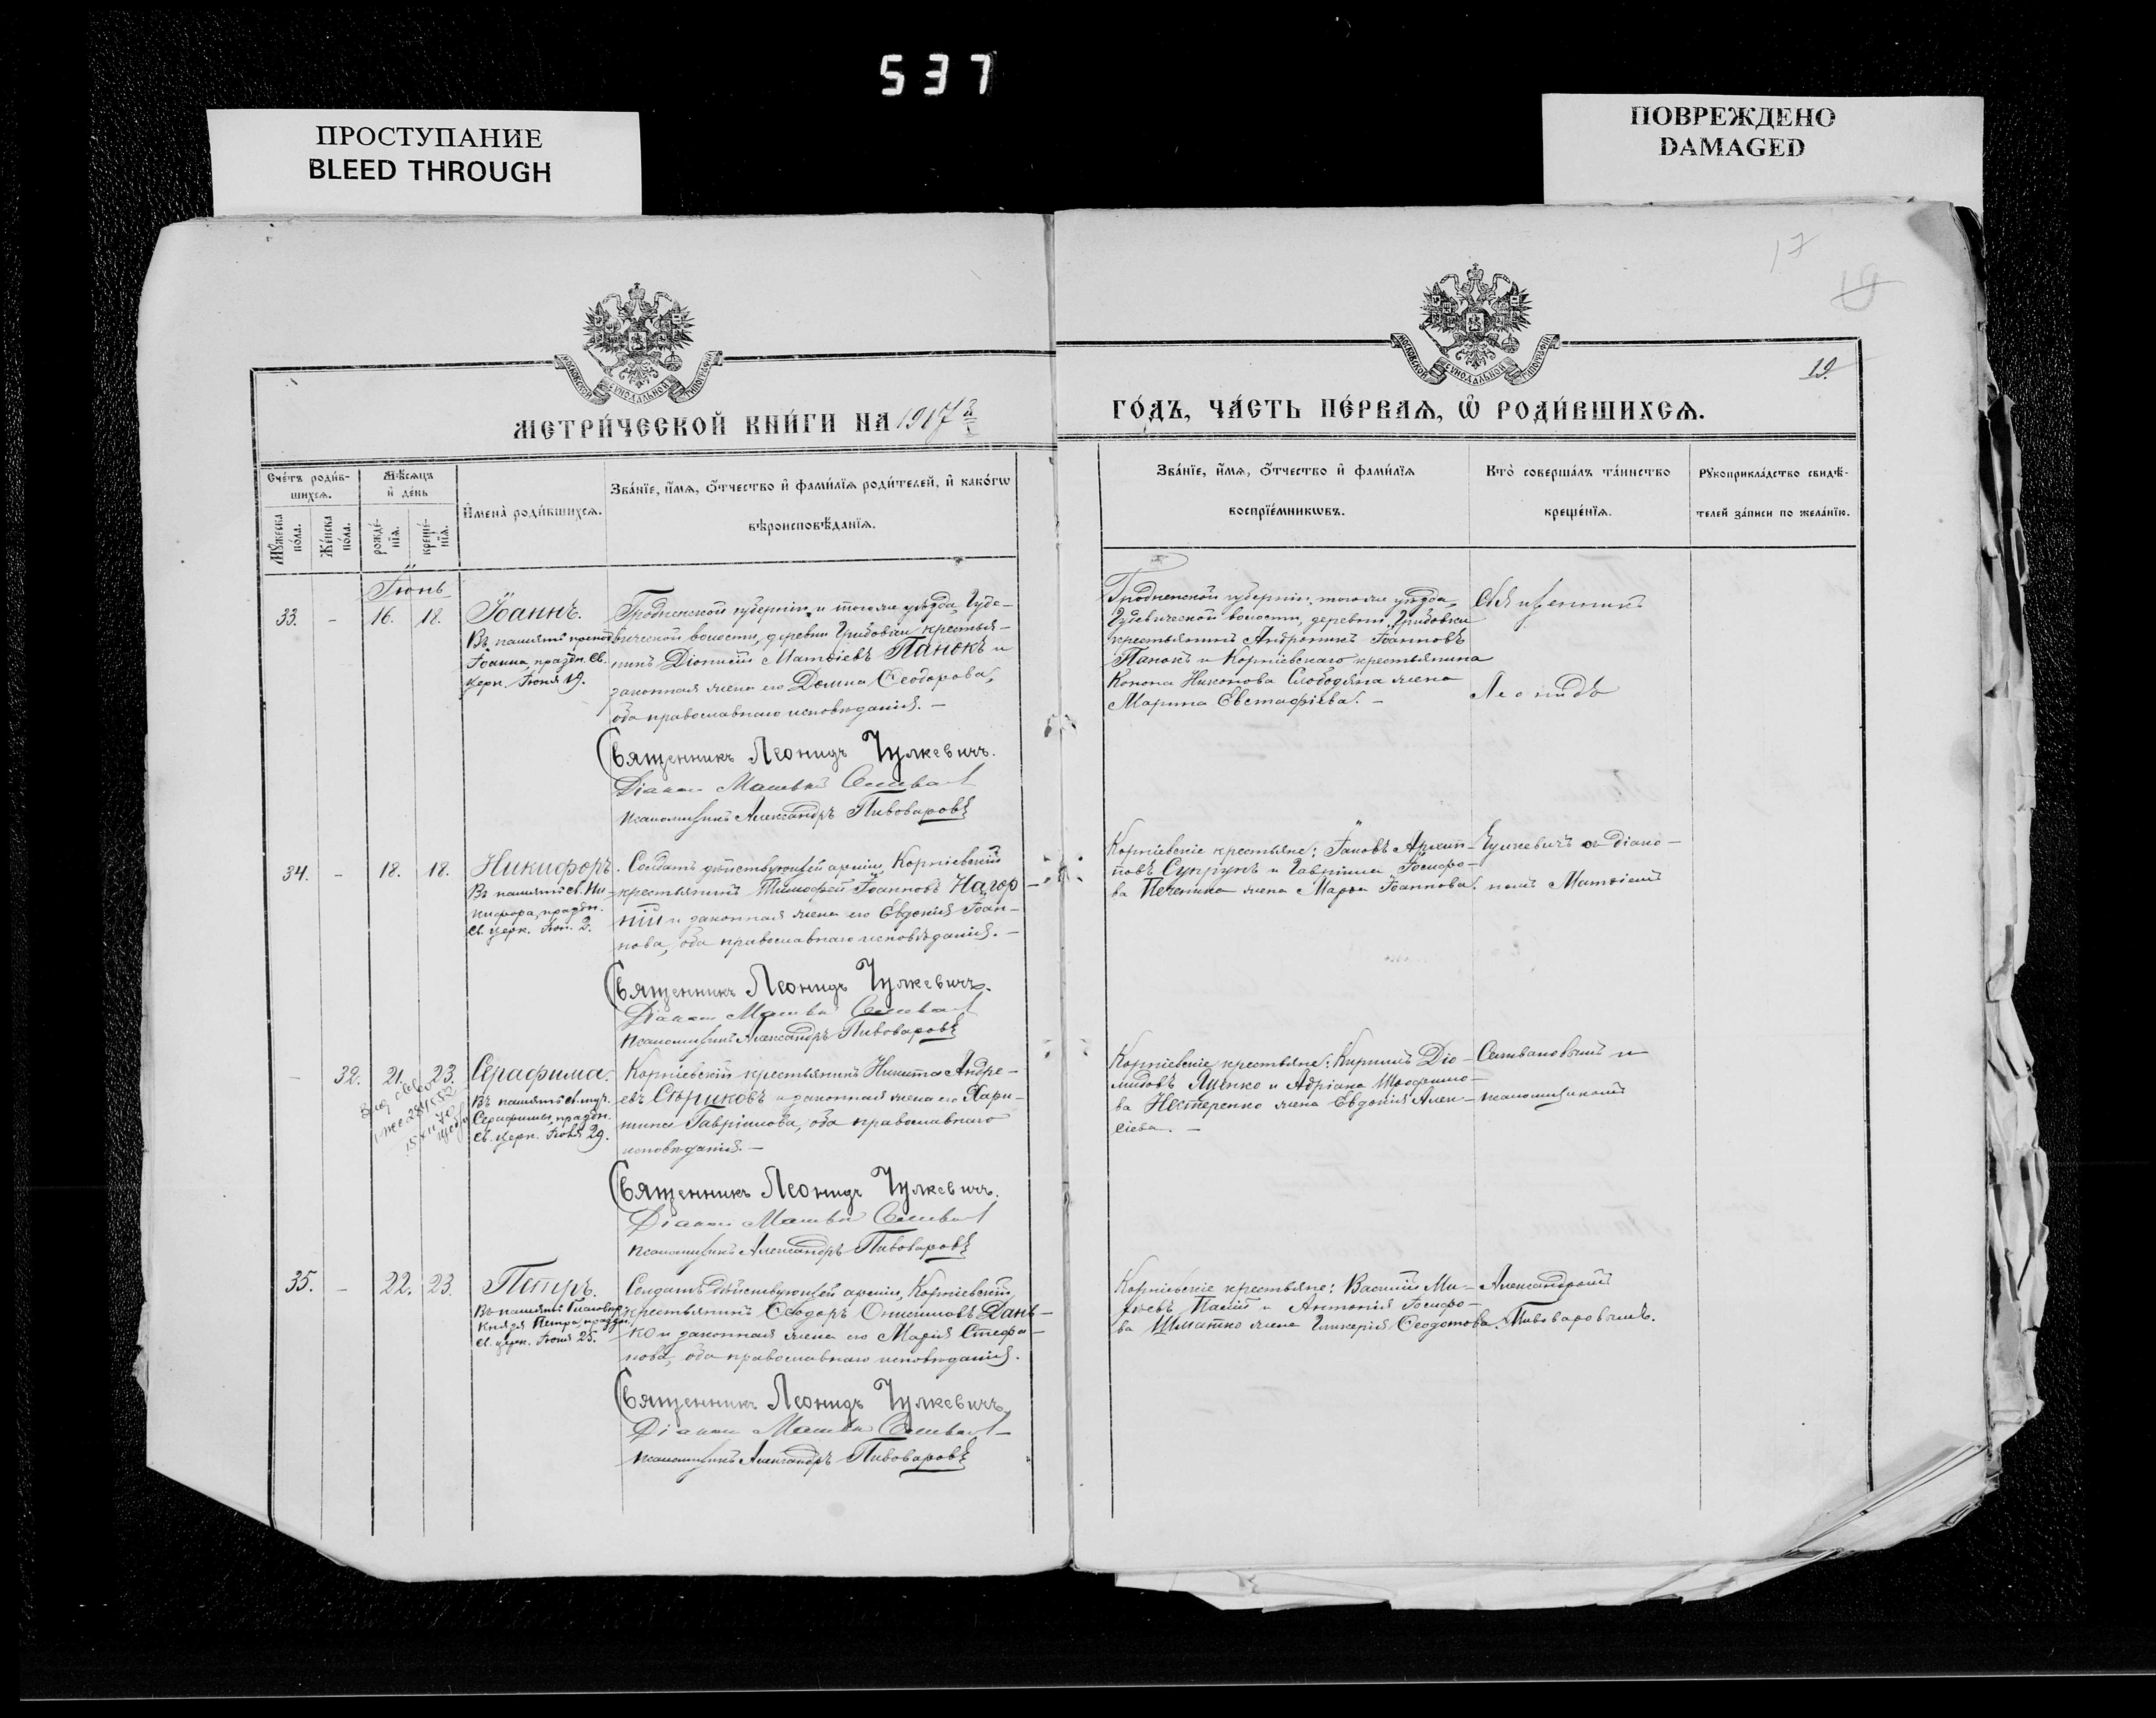 537
ПРОСТУПАНИЕ
BLEED THROUGH
ПОВРЕЖДЕНО
DAMAGED
17
19
19.
МОСКОВСКОЙ СѴНОДАЛЬНОЙ ТИПОГРАФІИ
МОСКОВСКОЙ СѴНОДАЛЬНОЙ ТИПОГРАФІИ
МЕТРИ́ЧЕСКОЙ КНИ́ГИ НА 1917 й
ГО́ДЪ, ЧА́СТЬ ПЕ́РВАѦ, Ѡ҆ РОДИ́ВШИХСѦ.
Сче́тъ роди́в-
шихсѧ.
Мѣ́сѧцъ
и҆ де́нь
Мꙋ́жеска
по́ла.
Же́нска
по́ла.
рожде́-
нїѧ.
креще́-
нїѧ.
И҆мена̀ роди́вшихсѧ.
Зва́нїе, и҆́мѧ, ѻ҆́тчество и҆ фами́лїѧ роди́телей, и҆ како́гѡ
вѣроисповѣ́данїѧ.
Зва́нїе, и҆́мѧ, ѻ҆́тчество и҆ фами́лїѧ
воспрїе́мникѡвъ.
Кто̀ соверша́лъ та́инство
креще́нїѧ.
Рꙋкоприкла́дство свидѣ́-
телей за́писи по жела́нїю.
Іюнь
33. - 16. 18. Іоаннъ.
Въ память препод.
Іоанна, праздн. Св.
Церк. Іюня 19.
Гродненской губерніи и того же уѣзда, Гуде-
вической волости, деревни Грибовки крестья-
нинъ Діонисій Матвіевъ Панокъ и
законная жена его Домна Ѳеодорова,
оба православнаго исповѣданія. -
Священникъ Леонидъ Чулкевичъ.
Діаконъ Матвѣй Селиванов
псаломщикъ Александръ Пивоваровъ
Гродненской губерніи, того же уѣзда,
Гудевической волости, деревни Грибовки
крестьянинъ Андроникъ Іоанновъ
Панокъ и Корніевскаго крестьянина
Конона Никонова Слободяна жена
Марина Евстафіева. -
Священникъ
Леонидъ
34. - 18. 18. Никифоръ.
Въ память св. Ни-
кифора, праздн.
Св. Церк. Іюн. 2.
Солдатъ дѣйствующей арміи, Корніевскій
крестьянинъ Тимофей Іоанновъ Нагор-
ній и законная жена его Евдокія Іоан-
нова, оба православнаго исповѣданія. -
Священникъ Леонидъ Чулкевичъ.
Діаконъ Матвѣй Селиванов
псаломщикъ Александръ Пивоваровъ
Корніевскіе крестьяне: Іаковъ Архип-
повъ Супрунъ и Гавріила Іосифо-
ва Печенина жена Марѳа Іоаннова.
Чулкевичъ съ діако-
номъ Матвіемъ
- 32. 21. 23. Серафима.
Въ память св. муч.
Серафимы, праздн.
Св. Церк. Іюля 29.
Корніевскій крестьянинъ Никита Андре-
евъ Стриковъ и законная жена его Хари-
тина Гавріилова, оба православнаго
исповѣданія. -
Священникъ Леонидъ Чулкевичъ.
Діаконъ Матвѣй Селиванов
псаломщикъ Александръ Пивоваровъ
Корніевскіе крестьяне: Кириллъ Діо-
мидовъ Яценко и Адріана Трофимо-
ва Нестеренко жена Евдокія Алек-
сіева. -
Селивановымъ и
псаломщикомъ
35. - 22. 23. Петръ.
Въ память Благовѣр.
Князя Петра, праздн.
Св. Церк. Іюня 25.
Солдатъ дѣйствующей арміи, Корніевскій
крестьянинъ Ѳеодоръ Онисимовъ Дань-
ко и законная жена его Марія Стефа-
нова, оба православнаго исповѣданія.
Священникъ Леонидъ Чулкевичъ,
Діаконъ Матвѣй Селиванов
псаломщикъ Александръ Пивоваровъ
Корніевскіе крестьяне: Василій Ми-
хеевъ Палій и Антонія Іосифо-
ва Шматко жена Гликерія Ѳеодотова.
Александромъ
Пивоваровымъ.